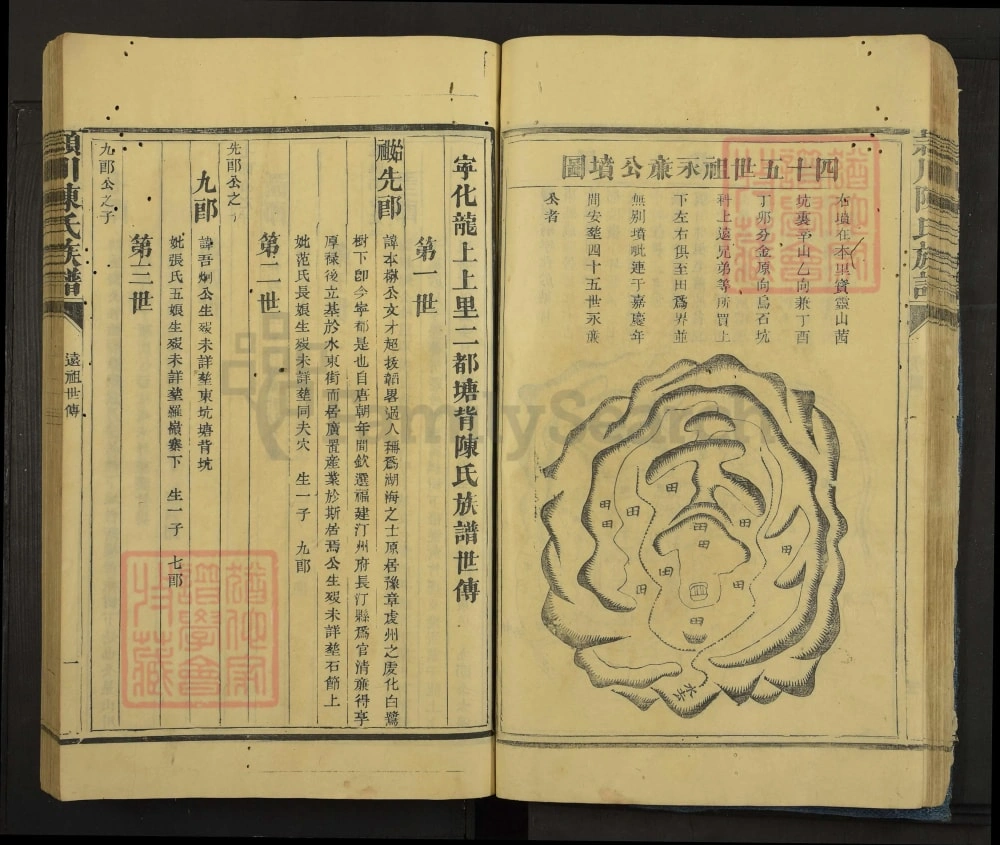 四十五世祖永㢘公墳圖
本墳在本里寶靈山茜
坑裏辛山乙向兼丁酉
丁卯分金原向烏石坑
科上遠兄弟等所買上
下左右俱至田爲界並
無别墳毗連于嘉慶年
間安塟四十五世永㢘
公者
田
田田
田
田
田田
田
田
田
田
田
田
水去
潁川陳氏族譜
寧化龍上上里二都塘背陳氏族譜世傳
第一世
始祖先郎 諱本㯋公文才超拔韜畧過人稱爲湖海之士原居豫章虔州之虔化白鷺
樹下卽今寧都是也自唐朝年間欽選福建汀州府長汀縣爲官清㢘得享
厚祿後立基於水東街而居廣置産業於斯居焉公生歿未詳塟石篩上
妣范氏長娘生歿未詳塟同夫穴 生一子 九郎
第二世
先郎公之子
九郎 諱吾烱公生歿未詳塟東坑塘背坑
妣張氏五娘生歿未詳塟羅巌寨下 生一子 七郎
第三世
九郎公之子
潁川陳氏族譜
遠祖世傳
一
FamilySearch